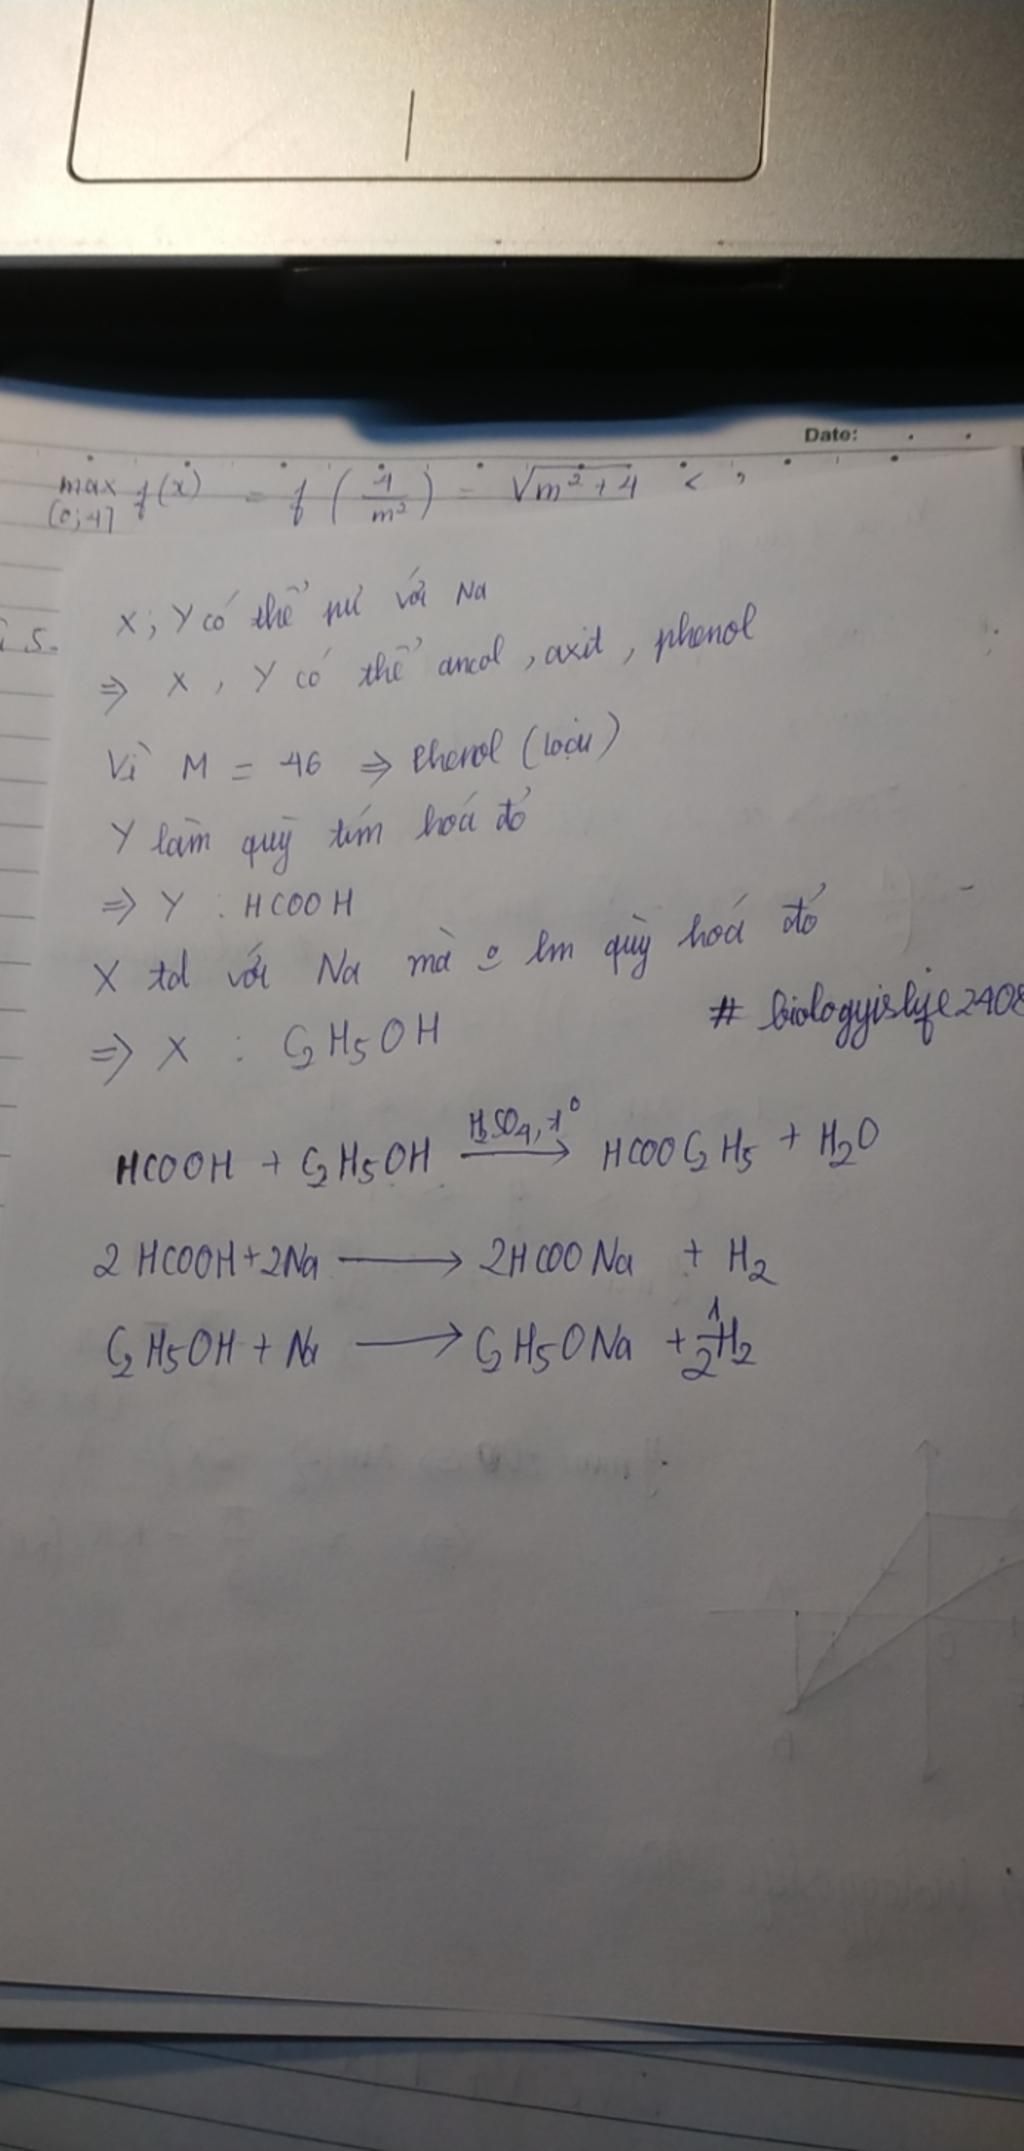 Date:
max f(x) = f(4/m²) = √m²+4 < ,
(0;4]
X; Y có thể pư với Na
⇒ X, Y có thể ancol, axit, phenol
Vì M = 46 ⇒ Phenol (loại)
Y làm quỳ tím hoá đỏ
⇒ Y : HCOOH
X td với Na mà o lm quỳ hoá đỏ
# biologyislife2408
⇒ X : C2H5OH
HCOOH + C2H5OH H2SO4, t° → HCOOC2H5 + H2O
2HCOOH + 2Na → 2HCOONa + H2
C2H5OH + Na → C2H5ONa + 1/2 H2